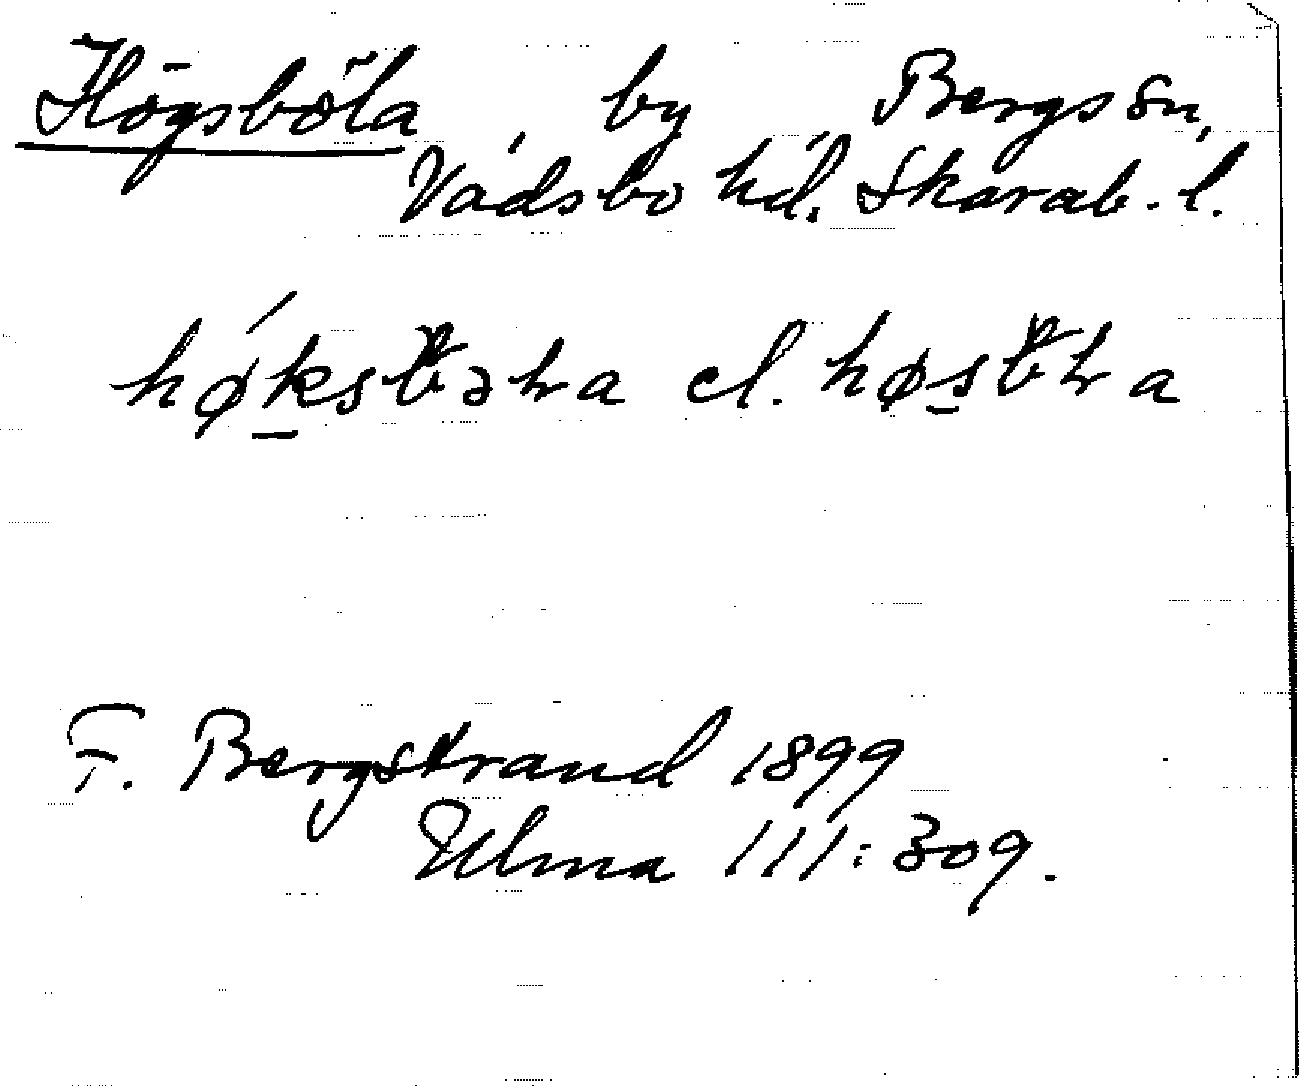 Högsböla by Bergs sn,
Vadsbo hd. Skarab. l.
el.
F. Bergstrand 1899
Ulma 111:309.